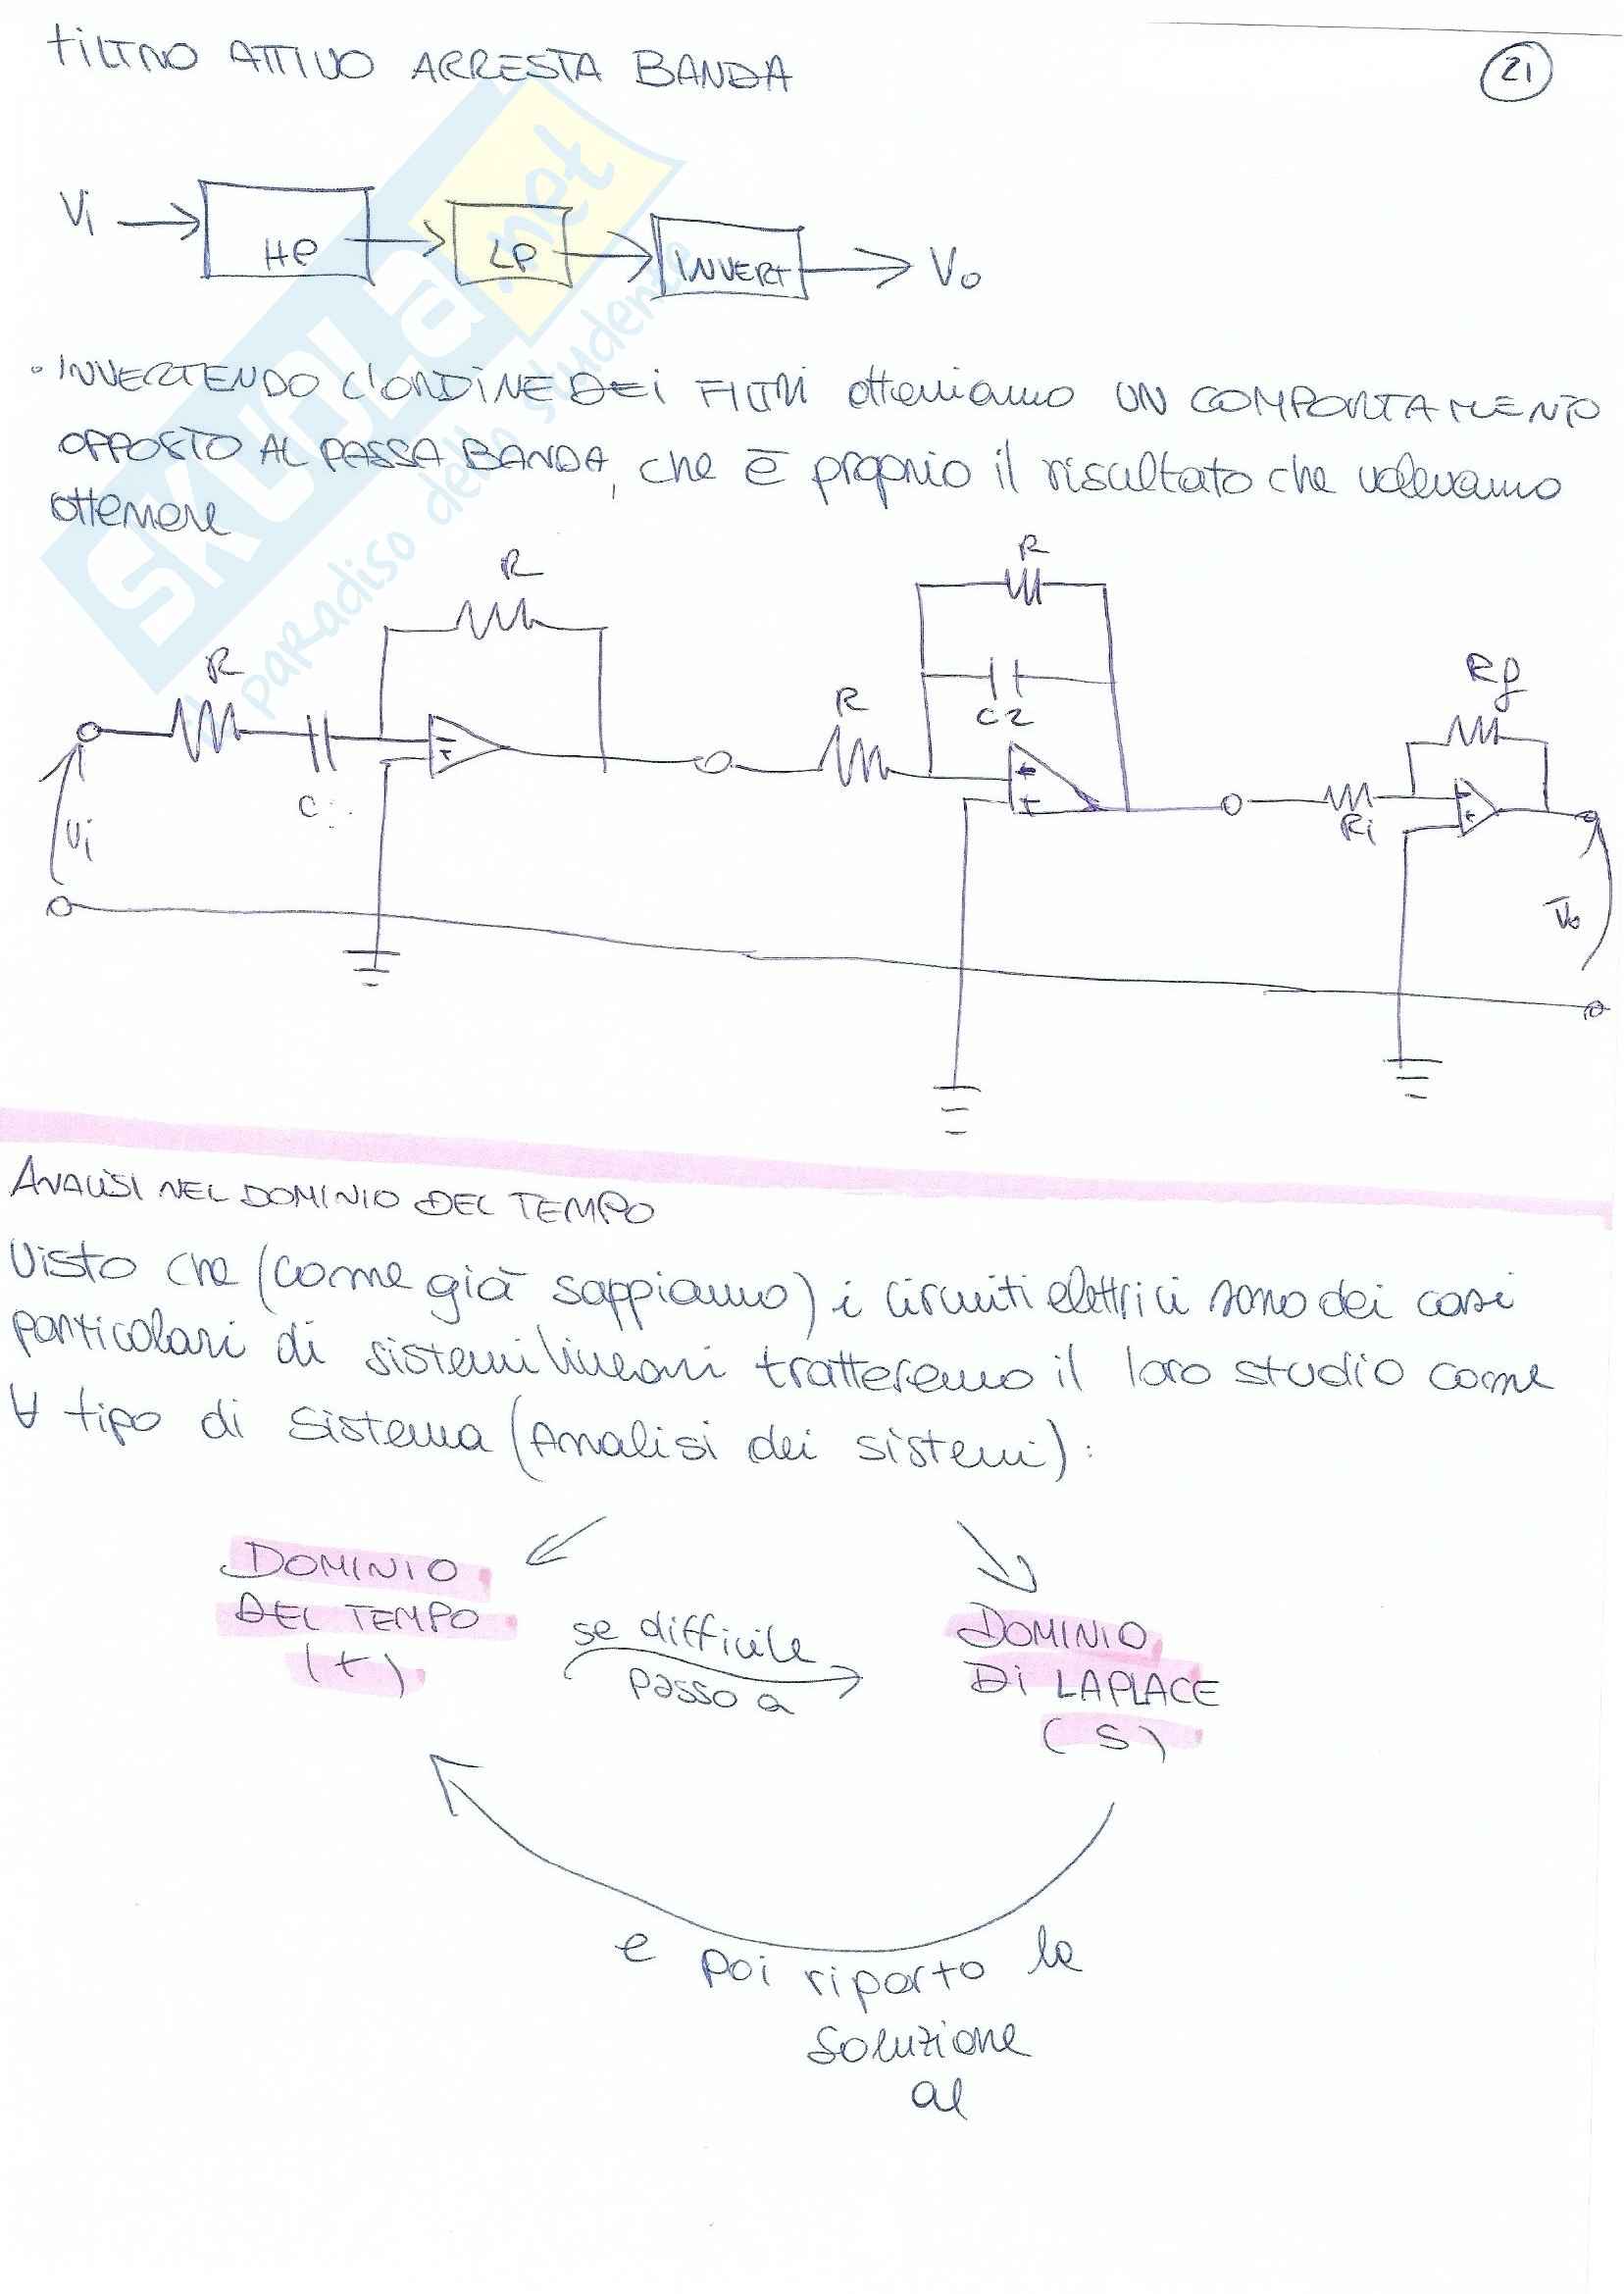 FILTRO ATTIVO ARRESTA BANDA
21
Vi
HP
LP
INVERT
Vo
• INVERTENDO L'ORDINE DEI FILTRI otteniamo UN COMPORTAMENTO
OPPOSTO AL PASSA BANDA, che è proprio il risultato che volevamo
ottenere
R
R
R
R
Rf
C2
C
Ri
Vi
Vo
SKUOLA.net
il paradiso dello studente
ANALISI NEL DOMINIO DEL TEMPO
Visto che (come già sappiamo) i circuiti elettrici sono dei casi
particolari di sistemi lineari tratteremo il loro studio come
∀ tipo di sistema (Analisi dei sistemi):
DOMINIO
DEL TEMPO
(t)
se difficile
passo a
DOMINIO
DI LAPLACE
(S)
e poi riporto la
soluzione
al